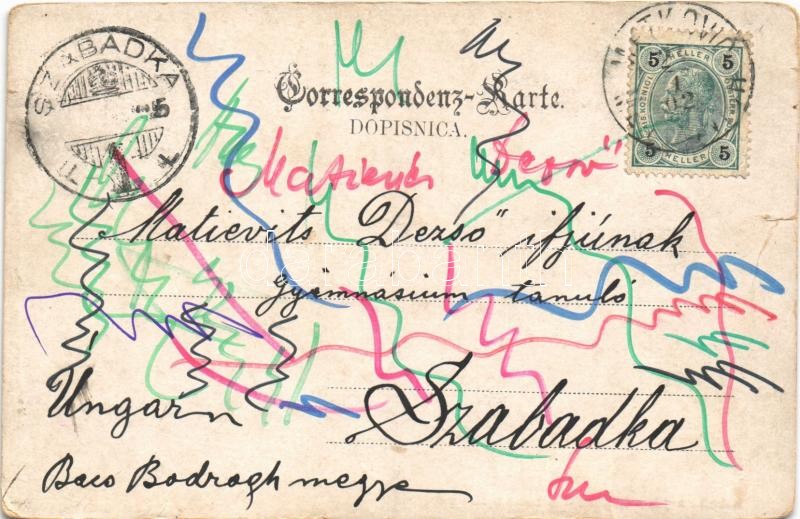 SZABADKA
5
5 HELLER 5
5 HELLER 5
Correspondenz-Karte.
DOPISNICA.
Matievits Dezső"
Matievits „Dezso" ifjúnak
Gyömnasium tanuló
Ungarn Szabadka
Bacs Bodrogh megye